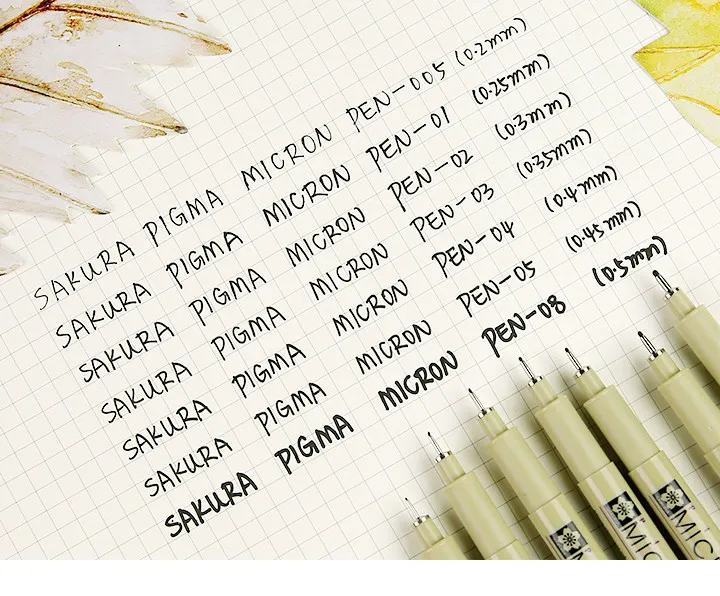 SAKURA PIGMA MICRON PEN-005 (0.2mm)
SAKURA PIGMA MICRON PEN-01 (0.25mm)
SAKURA PIGMA MICRON PEN-02 (0.3mm)
SAKURA PIGMA MICRON PEN-03 (0.35mm)
SAKURA PIGMA MICRON PEN-04 (0.4mm)
SAKURA PIGMA MICRON PEN-05 (0.45mm)
SAKURA PIGMA MICRON PEN-08 (0.5mm)
MIC
MIC